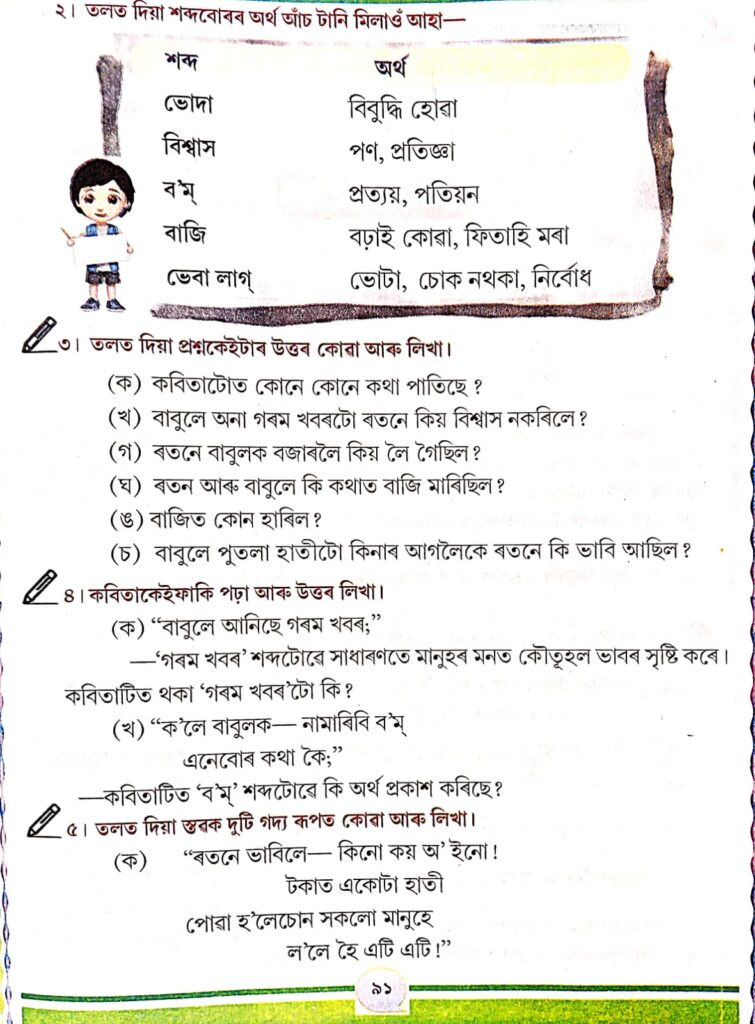 ২। তলত দিয়া শব্দবোৰৰ অৰ্থ আঁচ টানি মিলাওঁ আহা—
শব্দ অৰ্থ
ভোদা বিবুদ্ধি হোৱা
বিশ্বাস পণ, প্ৰতিজ্ঞা
ব’ম্ প্ৰত্যয়, পতিয়ন
বাজি বঢ়াই কোৱা, ফিতাহি মৰা
ভেবা লাগ্ ভোটা, চোক নথকা, নিৰ্বোধ
৩। তলত দিয়া প্ৰশ্নকেইটাৰ উত্তৰ কোৱা আৰু লিখা।
(ক) কবিতাটোত কোনে কোনে কথা পাতিছে?
(খ) বাবুলে অনা গৰম খবৰটো ৰতনে কিয় বিশ্বাস নকৰিলে?
(গ) ৰতনে বাবুলক বজাৰলৈ কিয় লৈ গৈছিল?
(ঘ) ৰতন আৰু বাবুলে কি কথাত বাজি মাৰিছিল?
(ঙ) বাজিত কোন হাৰিল?
(চ) বাবুলে পুতলা হাতীটো কিনাৰ আগলৈকে ৰতনে কি ভাবি আছিল?
৪। কবিতাকেইফাকি পঢ়া আৰু উত্তৰ লিখা।
(ক) “বাবুলে আনিছে গৰম খবৰ;”
—‘গৰম খবৰ’ শব্দটোৱে সাধাৰণতে মানুহৰ মনত কৌতূহল ভাবৰ সৃষ্টি কৰে।
কবিতাটিত থকা ‘গৰম খবৰ’টো কি?
(খ) “ক’লে বাবুলক— নামাৰিবি ব’ম্
এনেবোৰ কথা কৈ;”
—কবিতাটিত ‘ব’ম্’ শব্দটোৱে কি অৰ্থ প্ৰকাশ কৰিছে?
৫। তলত দিয়া স্তৱক দুটি গদ্য ৰূপত কোৱা আৰু লিখা।
(ক) “ৰতনে ভাবিলে— কিনো কয় অ’ ইনো!
টকাত একোটা হাতী
পোৱা হ’লেচোন সকলো মানুহে
ল’লে হৈ এটি এটি!”
৯১